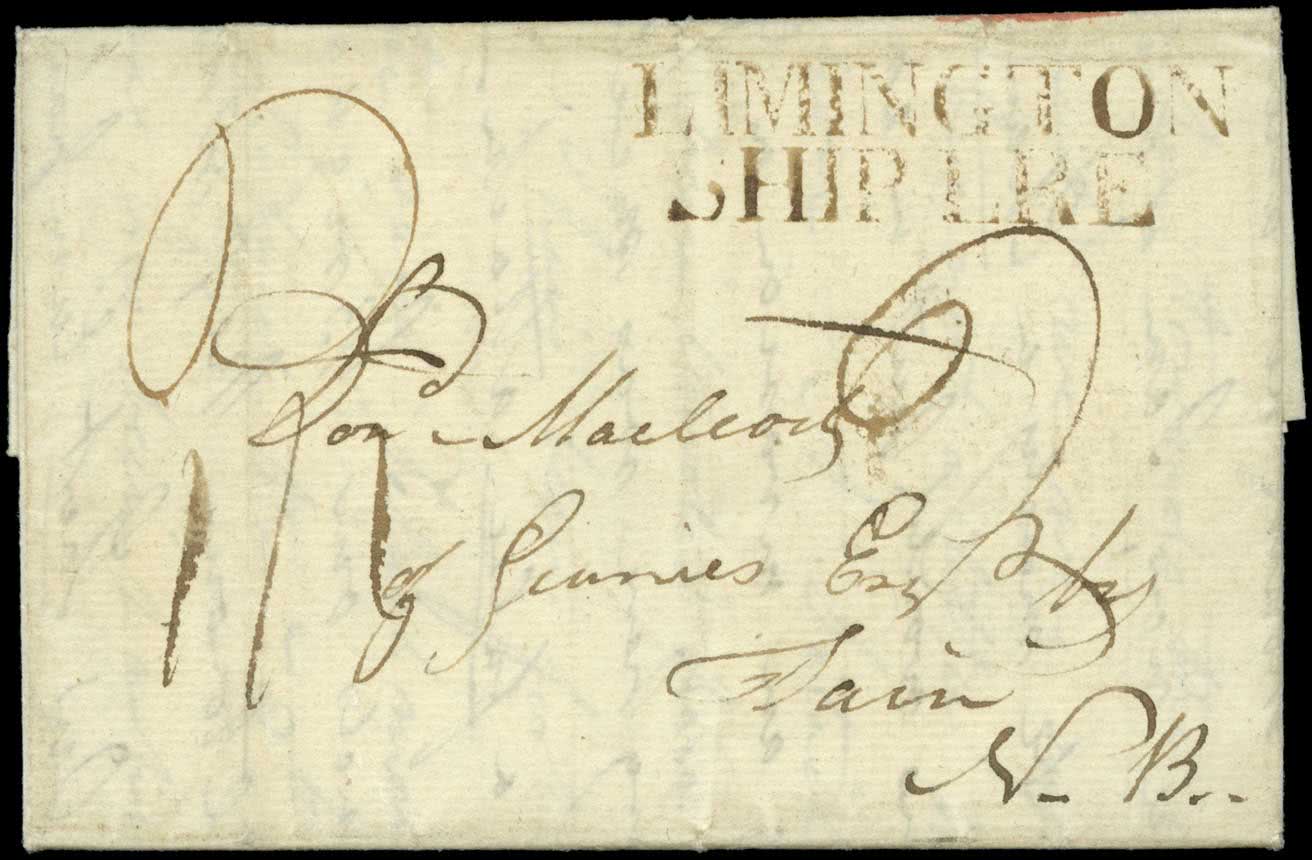 LIMINGTON
SHIP LRE
Dond Macleod
of Geanies Esqr by
Tain
N. B.